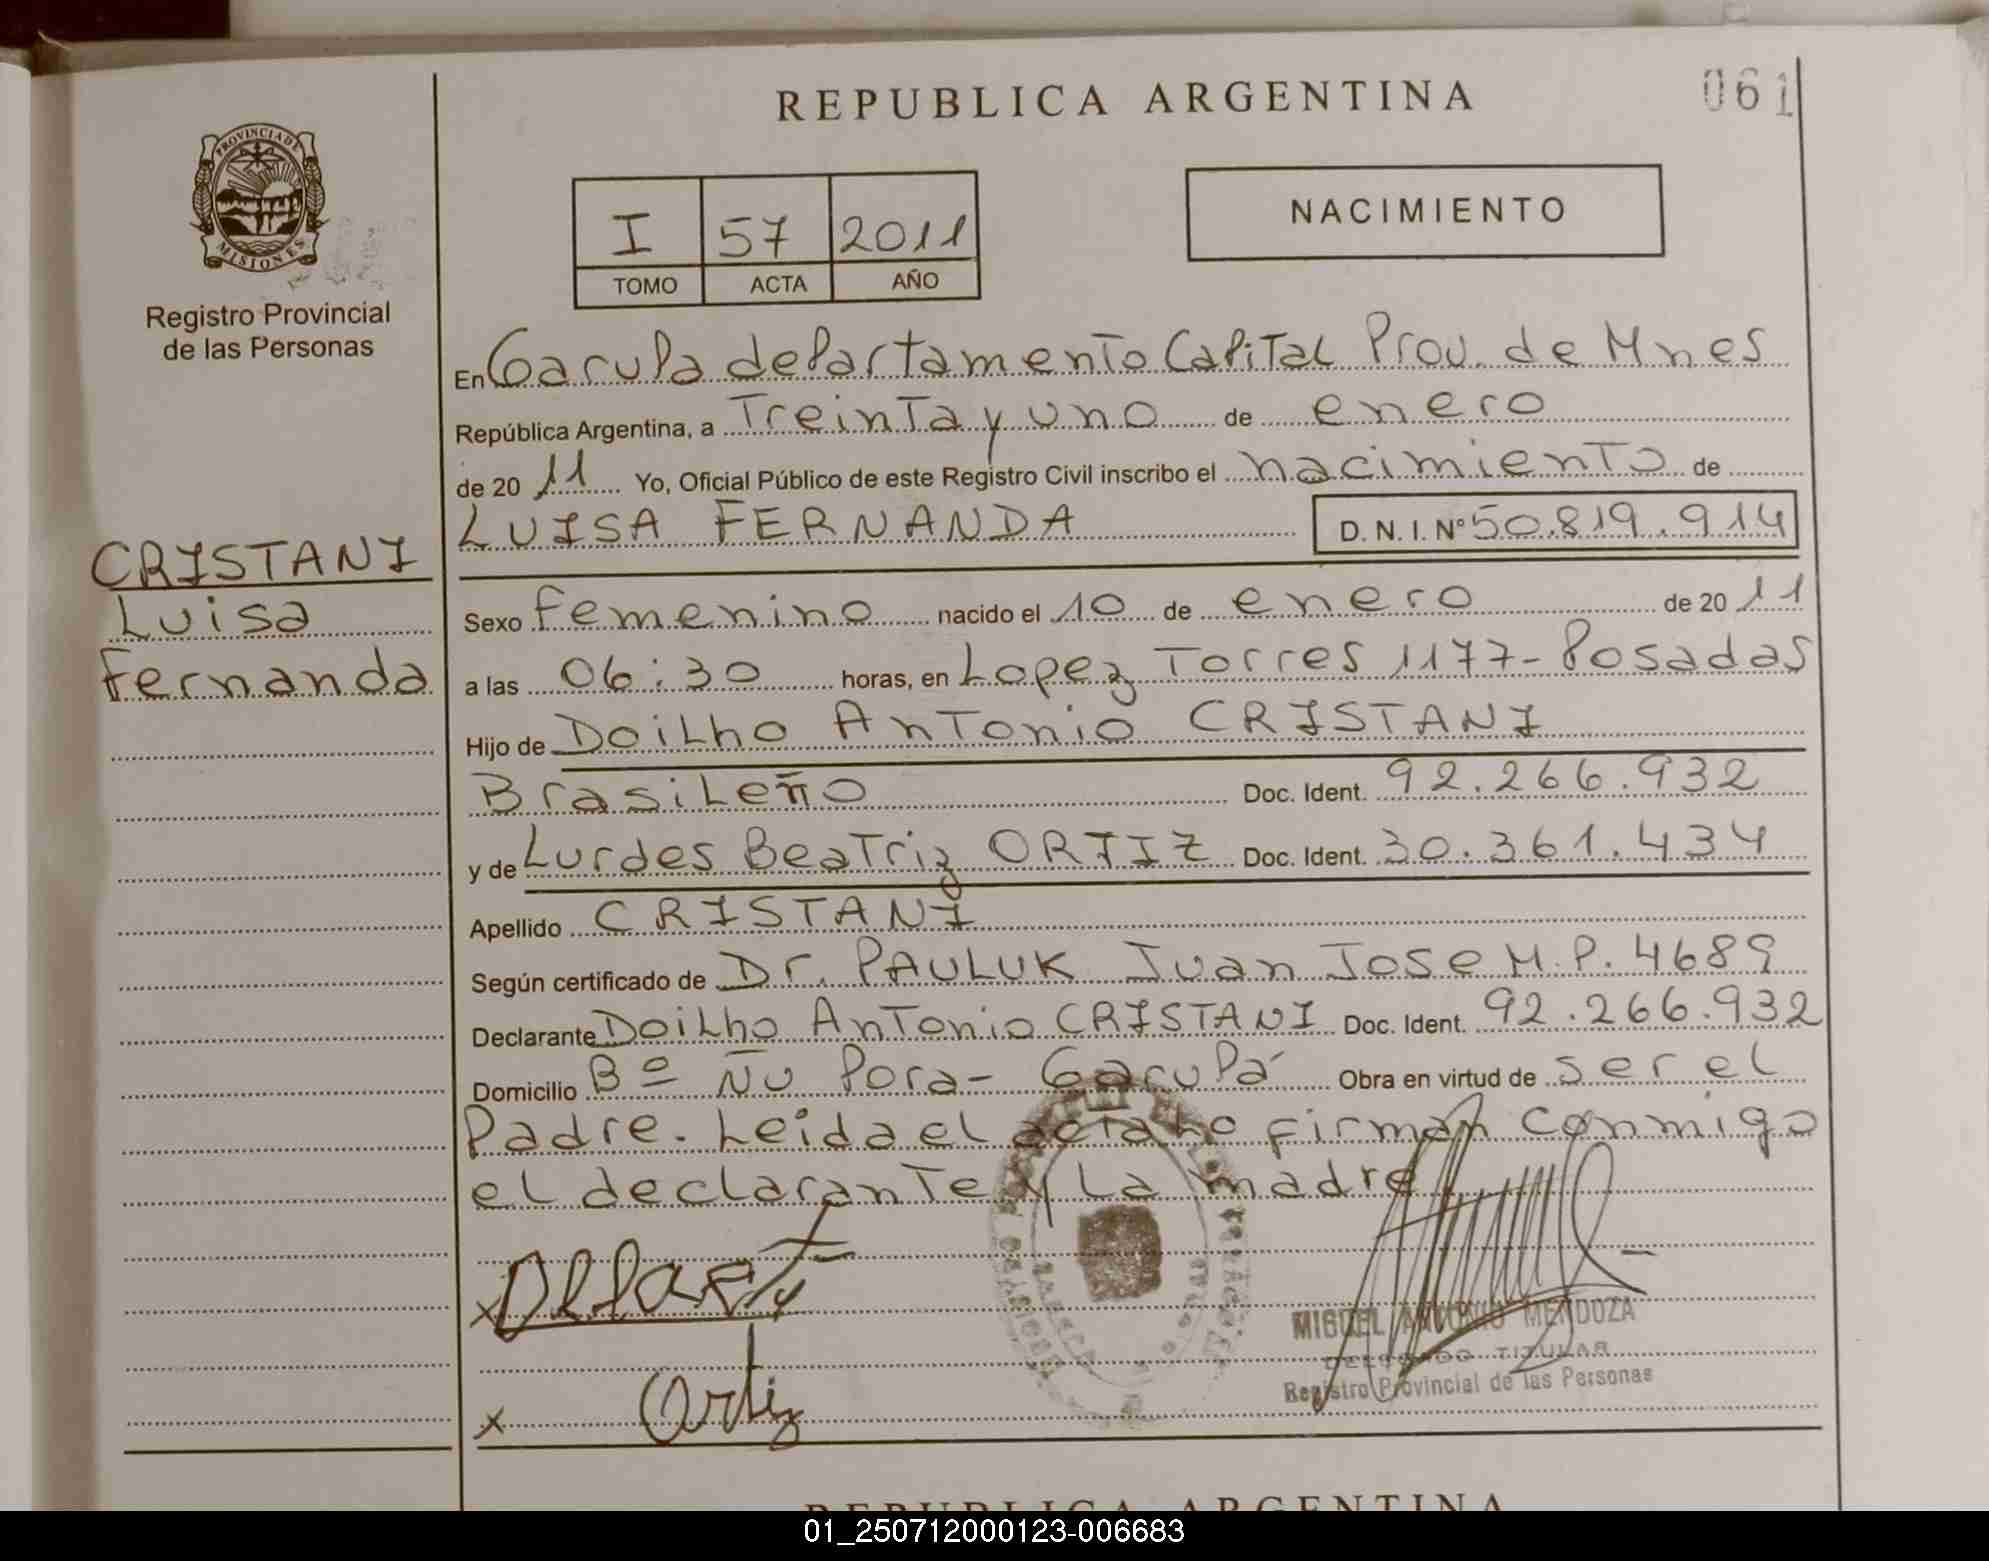 REPUBLICA ARGENTINA
061
PROVINCIA DE
MISIONES
Registro Provincial
de las Personas
I 57 2011
TOMO ACTA AÑO
NACIMIENTO
En Garupa departamento Capital Prov. de Mnes
República Argentina, a Treinta y uno de enero
de 20 11 Yo, Oficial Público de este Registro Civil inscribo el nacimiento de
LUISA FERNANDA D.N.I. Nº 50.819.914
CRISTANI
Luisa
Fernanda
Sexo femenino nacido el 10 de enero de 20 11
a las 06:30 horas, en Lopez Torres 1177-Posadas
Hijo de Doilho Antonio CRISTANI
Brasileño Doc. Ident. 92.266.932
y de Lurdes Beatriz ORTIZ Doc. Ident. 30.361.434
Apellido CRISTANI
Según certificado de Dr. PAULUK Juan Jose M.P. 4689
Declarante Doilho Antonio CRISTANI Doc. Ident. 92.266.932
Domicilio Bº Ñu Pora- Garupá Obra en virtud de ser el
Padre. Leida el acta ho firman conmigo
el declarante y la madre
x
x Ortiz
MIGUEL ANTONIO MENDOZA
DELEGADO TITULAR
Registro Provincial de las Personas
REPUBLICA ARGENTINA
01_250712000123-006683